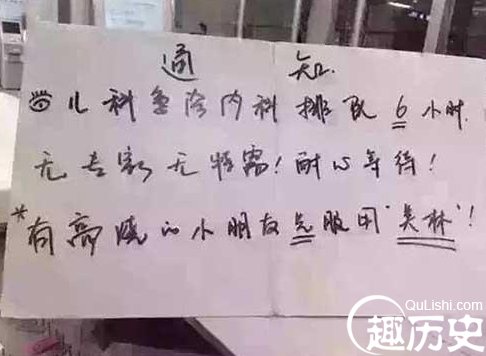 通 知
儿科急诊内科排队6小时.
无专家无特需!耐心等待!
*有高烧的小朋友先服用"美林"!
QuLishi.com
趣历史